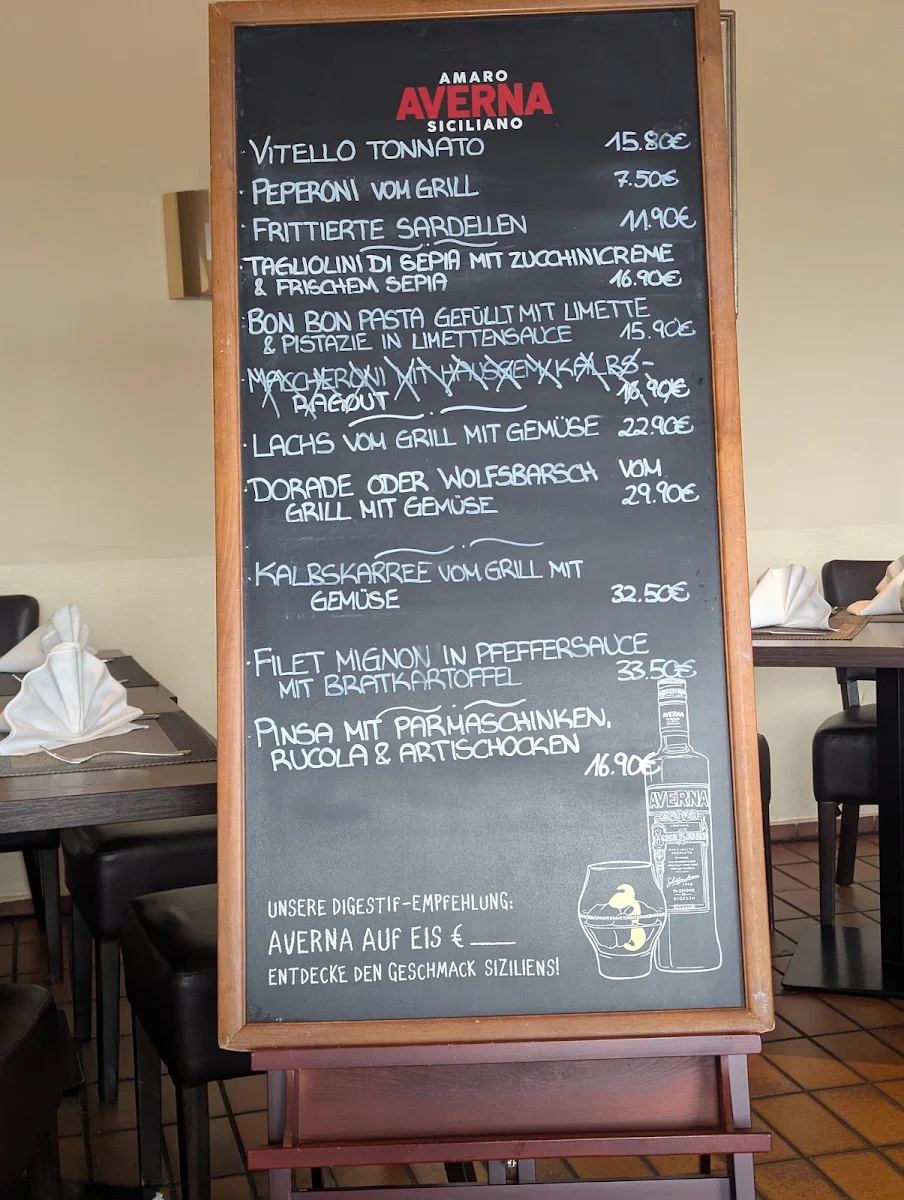 AMARO
AVERNA
SICILIANO
· VITELLO TONNATO 15.80€
· PEPERONI VOM GRILL 7.50€
· FRITTIERTE SARDELLEN 11.90€
· TAGLIOLINI DI SEPIA MIT ZUCCHINICREME
& FRISCHEM SEPIA 16.90€
· BON BON PASTA GEFÜLLT MIT LIMETTE
& PISTAZIE IN LIMETTENSAUCE 15.90€
· MASCHERONI MIT HAUSGEM. KALBS-
RAGOUT 16.90€
· LACHS VOM GRILL MIT GEMÜSE 22.90€
· DORADE ODER WOLFSBARSCH VOM
GRILL MIT GEMÜSE 29.90€
· KALBSKARREE VOM GRILL MIT
GEMÜSE 32.50€
· FILET MIGNON IN PFEFFERSAUCE
MIT BRATKARTOFFEL 33.50€
· PINSA MIT PARMASCHINKEN,
RUCOLA & ARTISCHOCKEN
16.90€
AVERNA
AVERNA
SICILIA
UNSERE DIGESTIF-EMPFEHLUNG:
AVERNA AUF EIS € ____
ENTDECKE DEN GESCHMACK SIZILIENS!